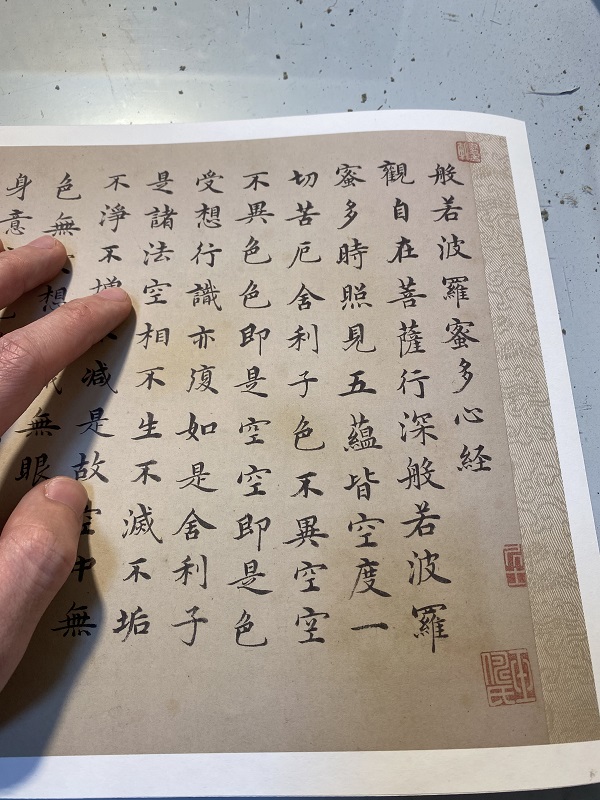 般若波羅蜜多心経
觀自在菩薩行深般若波羅
蜜多時照見五蘊皆空度一
切苦厄舍利子色不異空空
不異色色即是空空即是色
受想行識亦復如是舍利子
是諸法空相不生不滅不垢
不淨不增減是故空中無
色無想無眼
身意